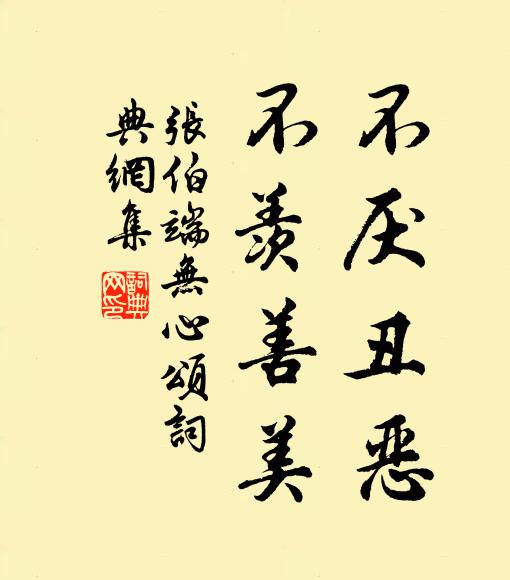 不厌丑恶
不羨善美
張伯端無心頌詞
典網集
詞典
网印